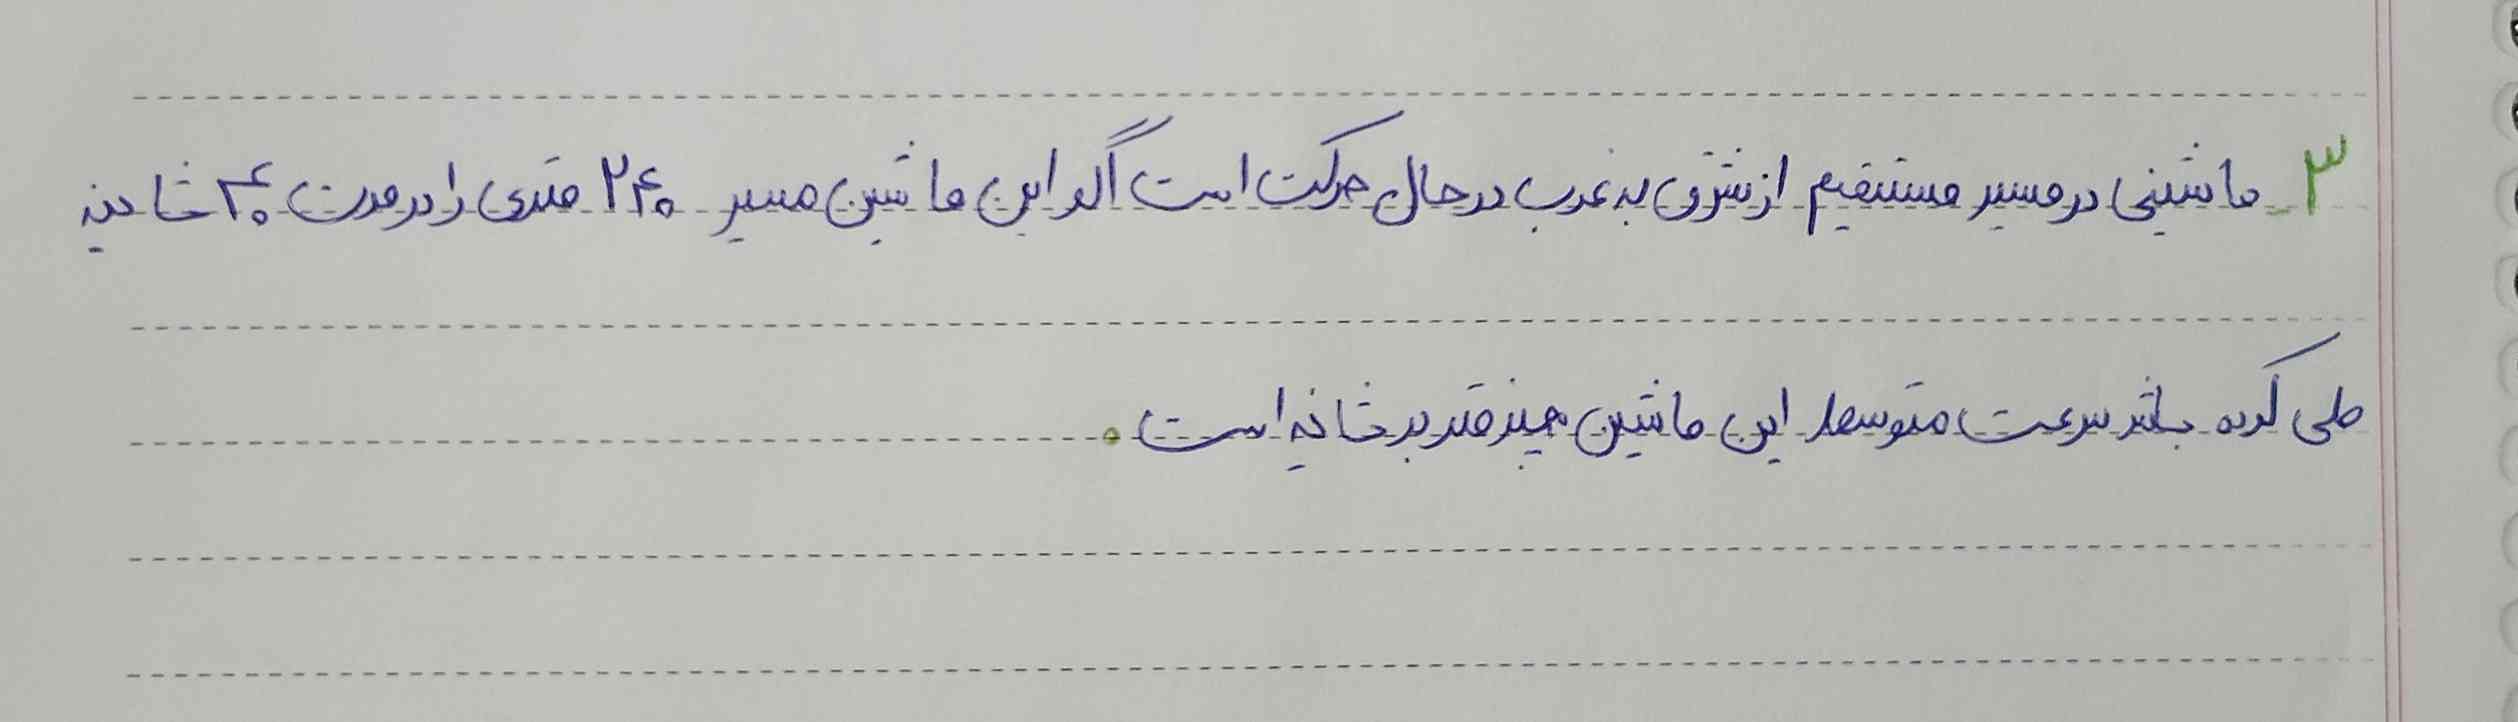 ۳_ ماشینی در مسیر مستقیم از شرق به غرب در حال حرکت است اگر این ماشین مسیر ۲۴۰ متری را در مدت ۴۰ ثانیه
طی کرده باشد سرعت متوسط این ماشین چند متر بر ثانیه است.